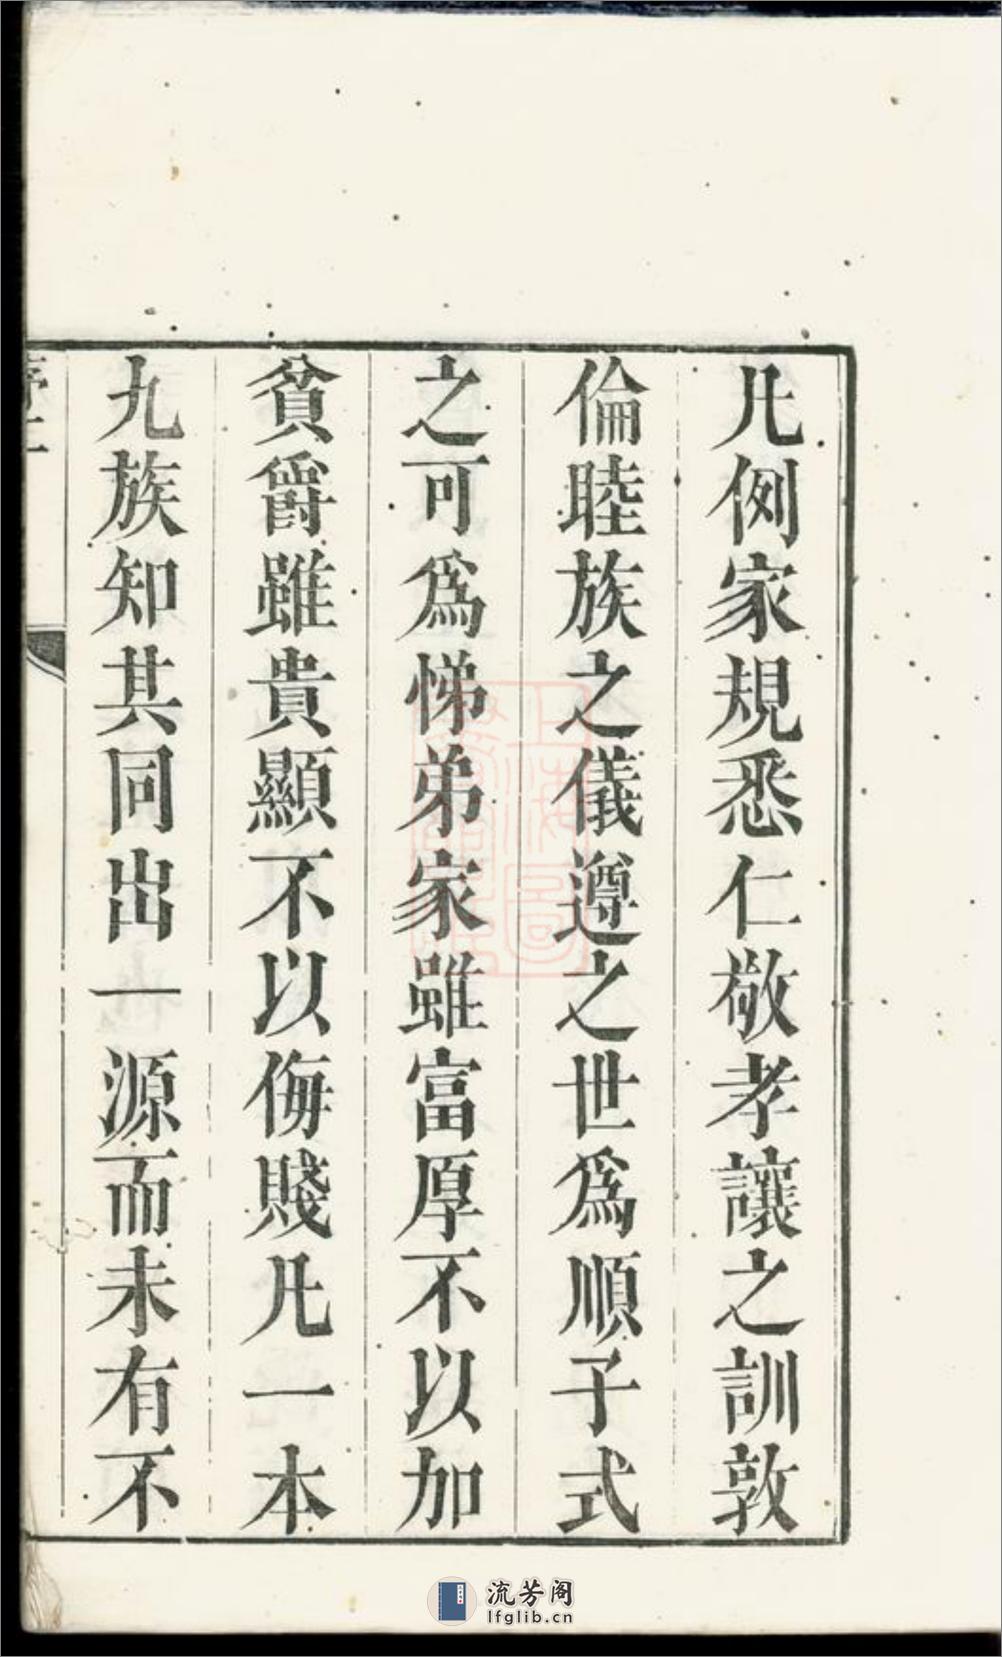 凡例家規悉仁敬孝讓之訓敦
倫睦族之儀遵之世為順子式
之可為悌弟家雖富厚不以加
貧爵雖貴顯不以侮賤凡一本
九族知其同出一源而未有不
流芳阁
lfglib.cn